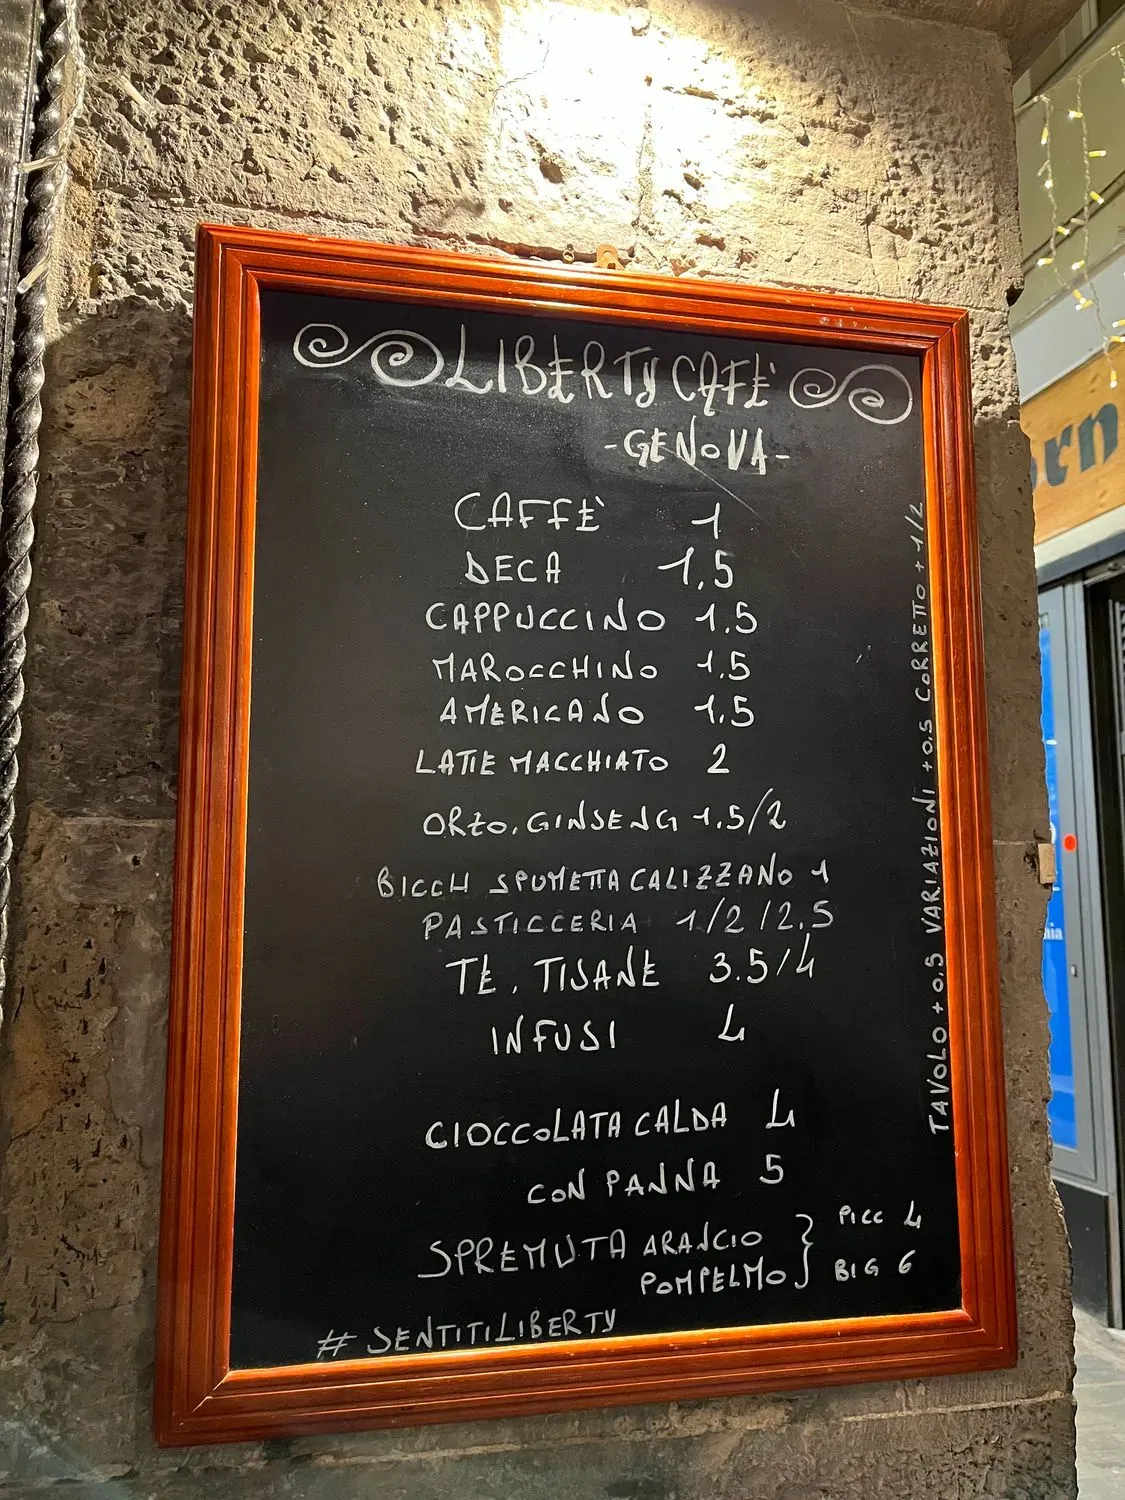 LIBERTY CAFE'
-GENOVA-
CAFFÈ 1
DECA 1,5
CAPPUCCINO 1.5
MAROCCHINO 1.5
AMERICANO 1.5
LATTE MACCHIATO 2
ORZO, GINSENG 1.5/2
BICCH SPUMETTA CALIZZANO 1
PASTICCERIA 1/2/2.5
TÈ, TISANE 3.5/4
INFUSI 4
CIOCCOLATA CALDA 4
CON PANNA 5
SPREMUTA ARANCIO } PICC 4
POMPELMO } BIG 6
# SENTITILIBERTY
TAVOLO + 0.5 VARIAZIONI + 0,5 CORRETTO + 1/2